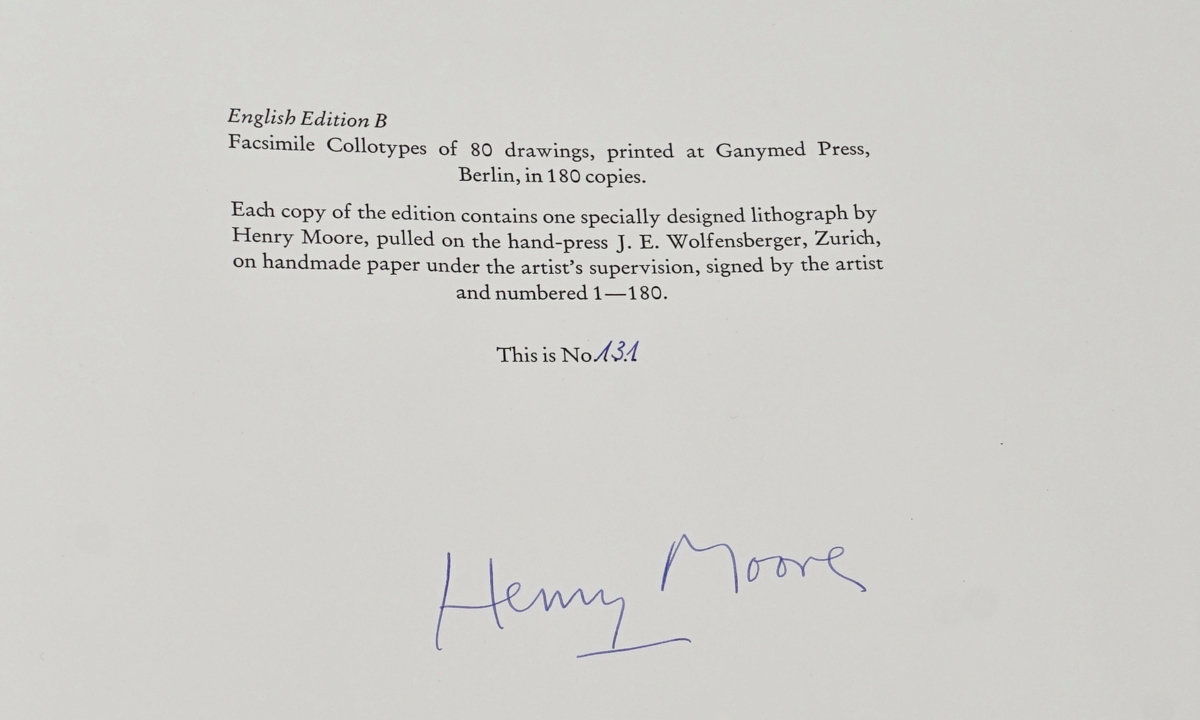 English Edition B
Facsimile Collotypes of 80 drawings, printed at Ganymed Press,
Berlin, in 180 copies.
Each copy of the edition contains one specially designed lithograph by
Henry Moore, pulled on the hand-press J. E. Wolfensberger, Zurich,
on handmade paper under the artist's supervision, signed by the artist
and numbered 1—180.
This is No. 131
Henry Moore